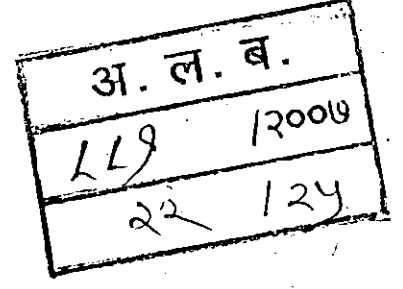 अ. ल. ब.
८८१ /२००७
२२ /२५